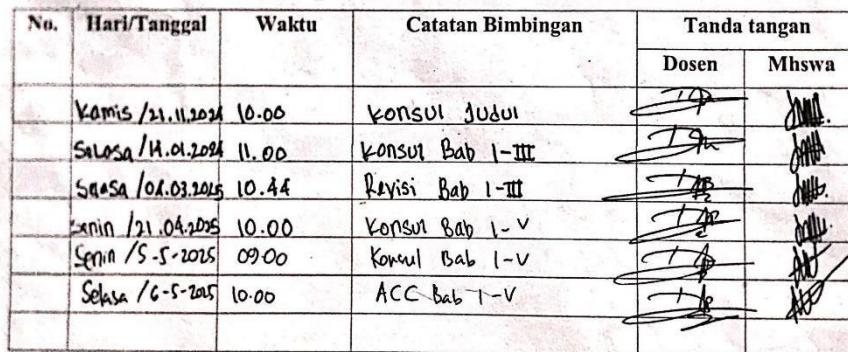 No. Hari/Tanggal Waktu Catatan Bimbingan Tanda tangan
Dosen Mhswa
Kamis /21.11.2024 10.00 Konsul Judul
Selasa /14.01.2024 11.00 Konsul Bab I-III
Selasa /04.03.2025 10.44 Revisi Bab I-III
Senin /21.04.2025 10.00 Konsul Bab I-V
Senin /5-5-2025 09.00 Konsul Bab I-V
Selasa /6-5-2025 10.00 ACC Bab I-V